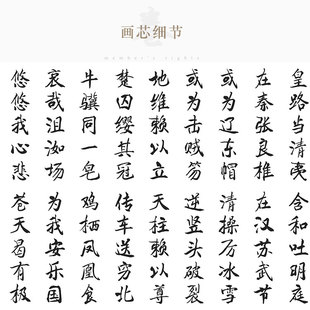 画芯细节
member's rights
皇路当清夷含和吐明庭
在秦张良椎在汉苏武节
或为辽东帽清操厉冰雪
或为击贼笏逆竖头破裂
地维赖以立天柱赖以尊
楚囚缨其冠传车送穷北
牛骥同一皂鸡栖凤凰食
哀哉沮洳场为我安乐国
悠悠我心悲苍天曷有极